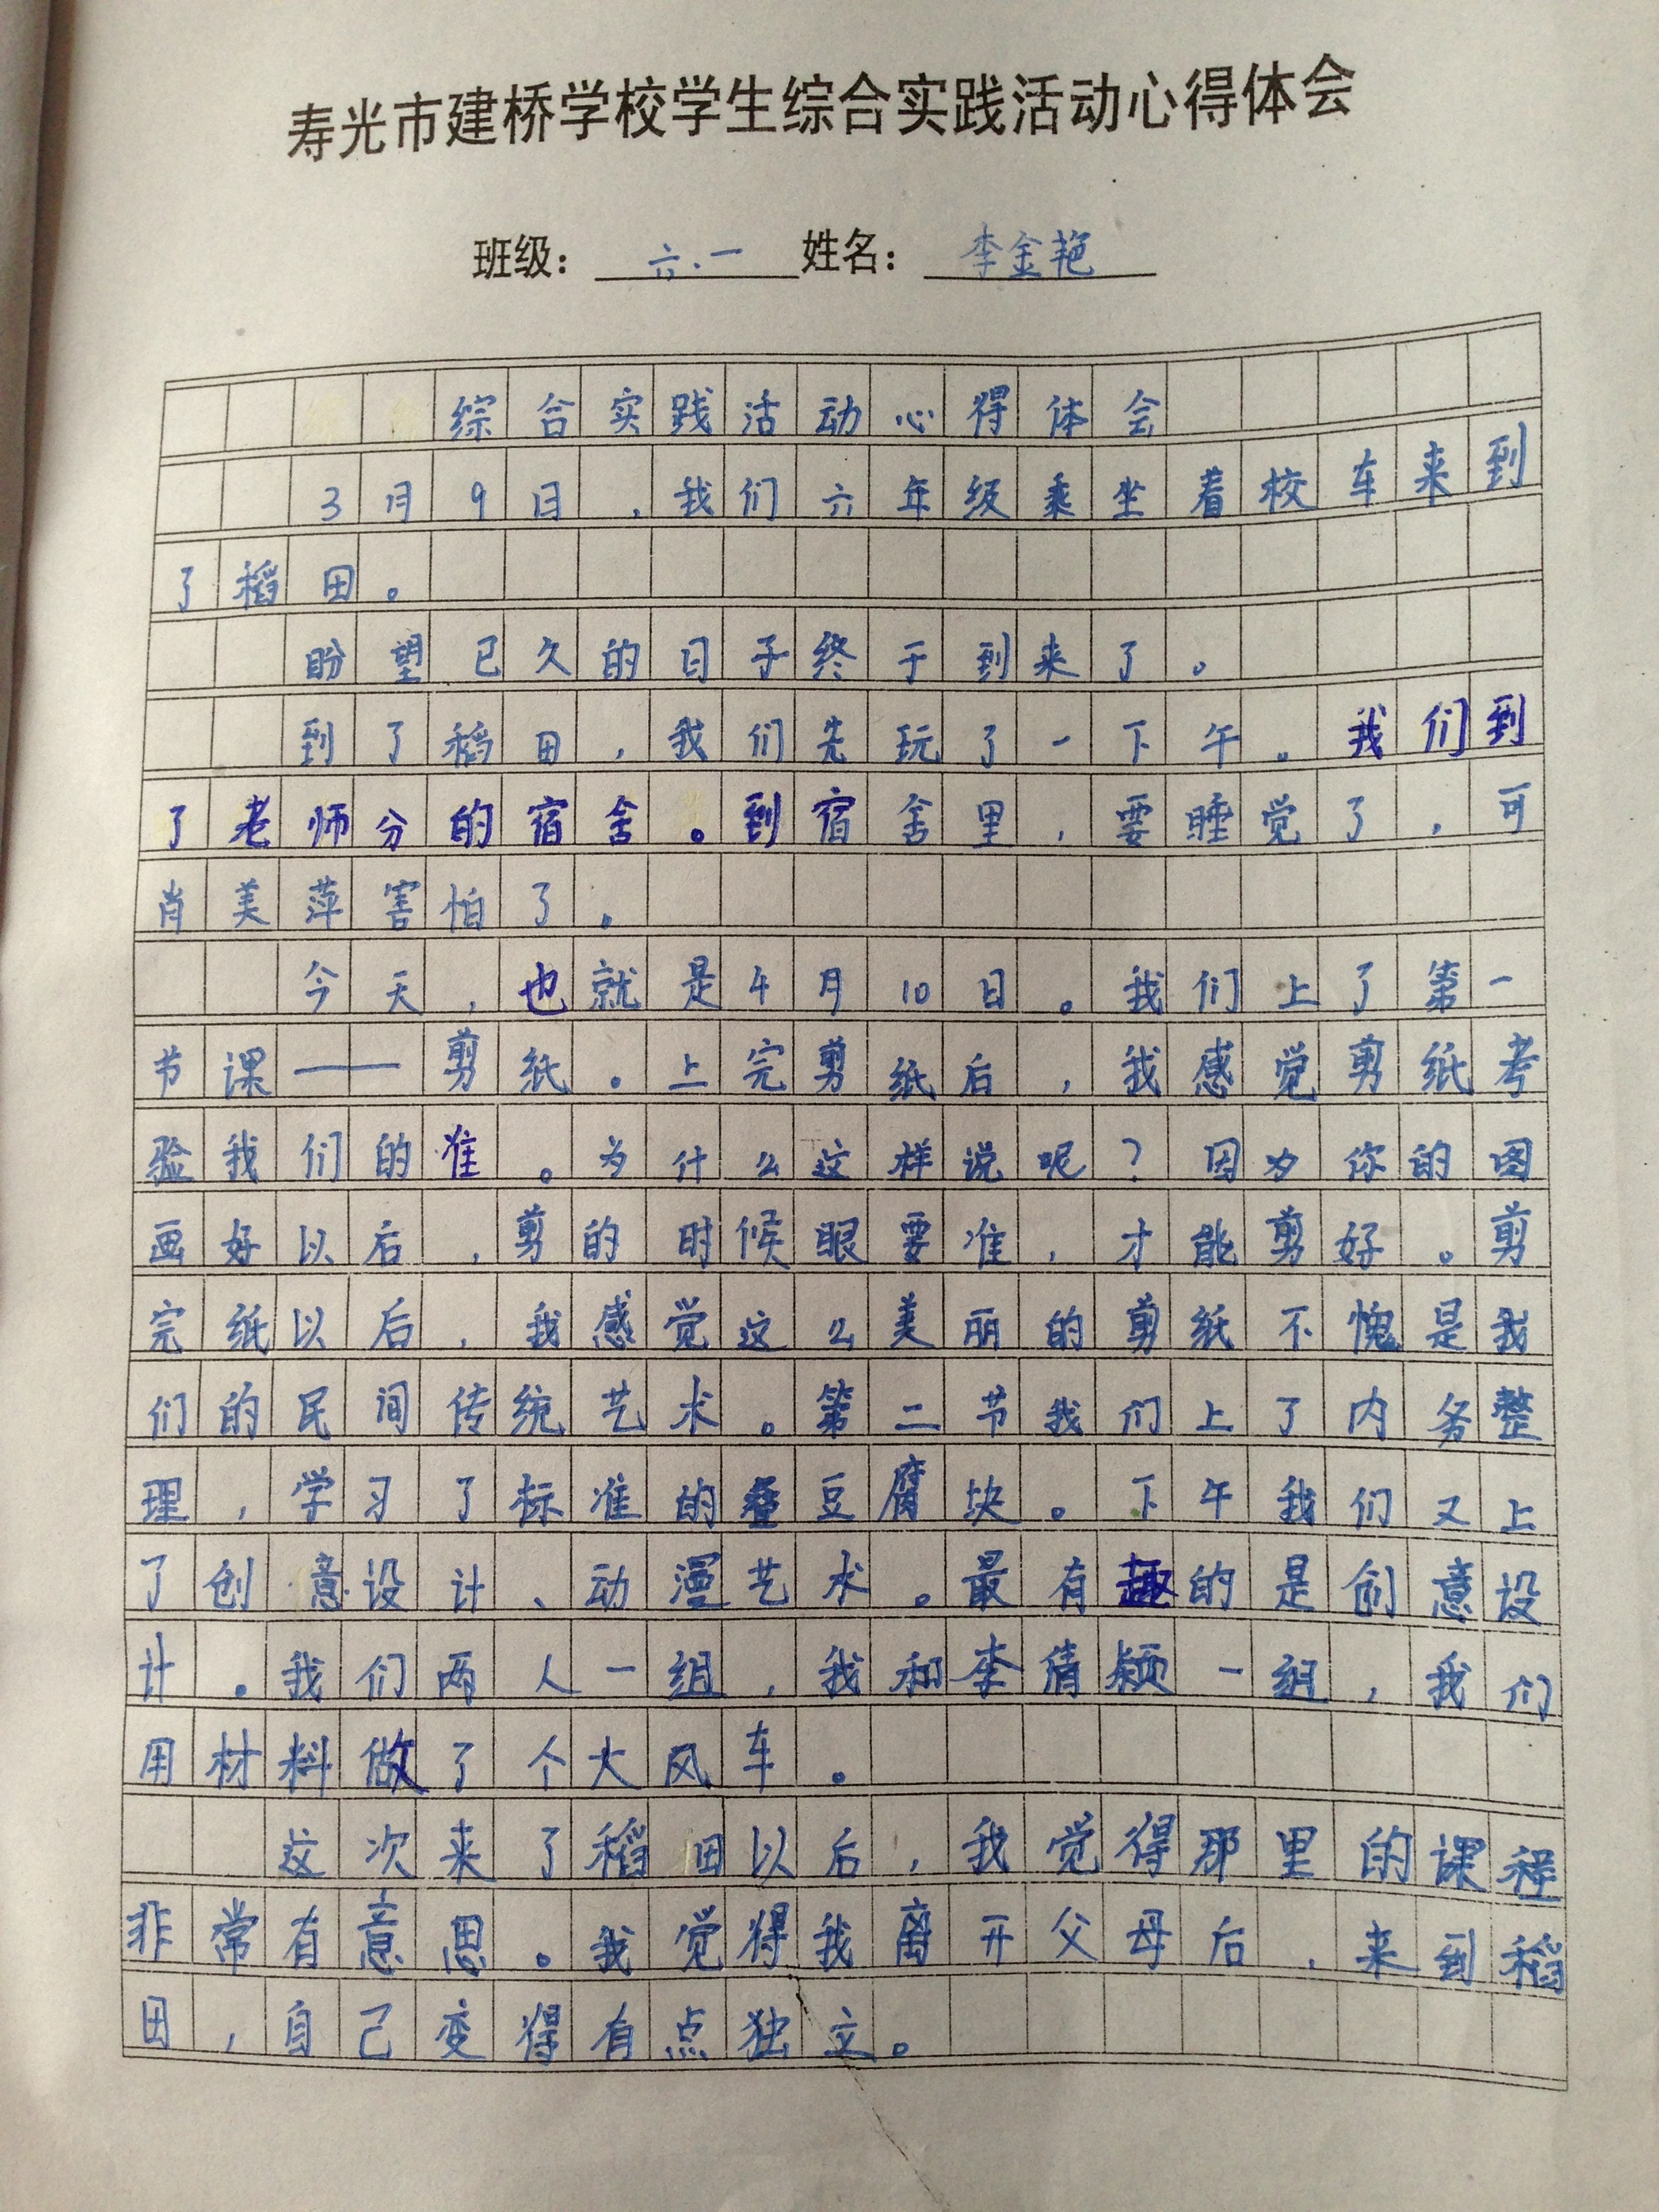 寿光市建桥学校学生综合实践活动心得体会
班级：六.一 姓名：李金艳
综合实践活动心得体会
3月9日，我们六年级乘坐着校车来到
了稻田。
盼望已久的日子终于到来了。
到了稻田，我们先玩了一下午。我们到
了老师分的宿舍。到宿舍里，要睡觉了，可
肖美萍害怕了。
今天，也就是4月10日。我们上了第一
节课——剪纸。上完剪纸后，我感觉剪纸考
验我们的准。为什么这样说呢？因为你的图
画好以后，剪的时候眼要准，才能剪好。剪
完纸以后，我感觉这么美丽的剪纸不愧是我
们的民间传统艺术。第二节我们上了内务整
理，学习了标准的叠豆腐块。下午我们又上
了创意设计、动漫艺术。最有趣的是创意设
计。我们两人一组，我和李倩颖一组，我们
用材料做了个大风车。
这次来了稻田以后，我觉得那里的课程
非常有意思。我觉得我离开父母后，来到稻
田，自己变得有点独立。